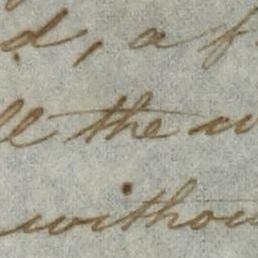 d, a f
ll the w
withou